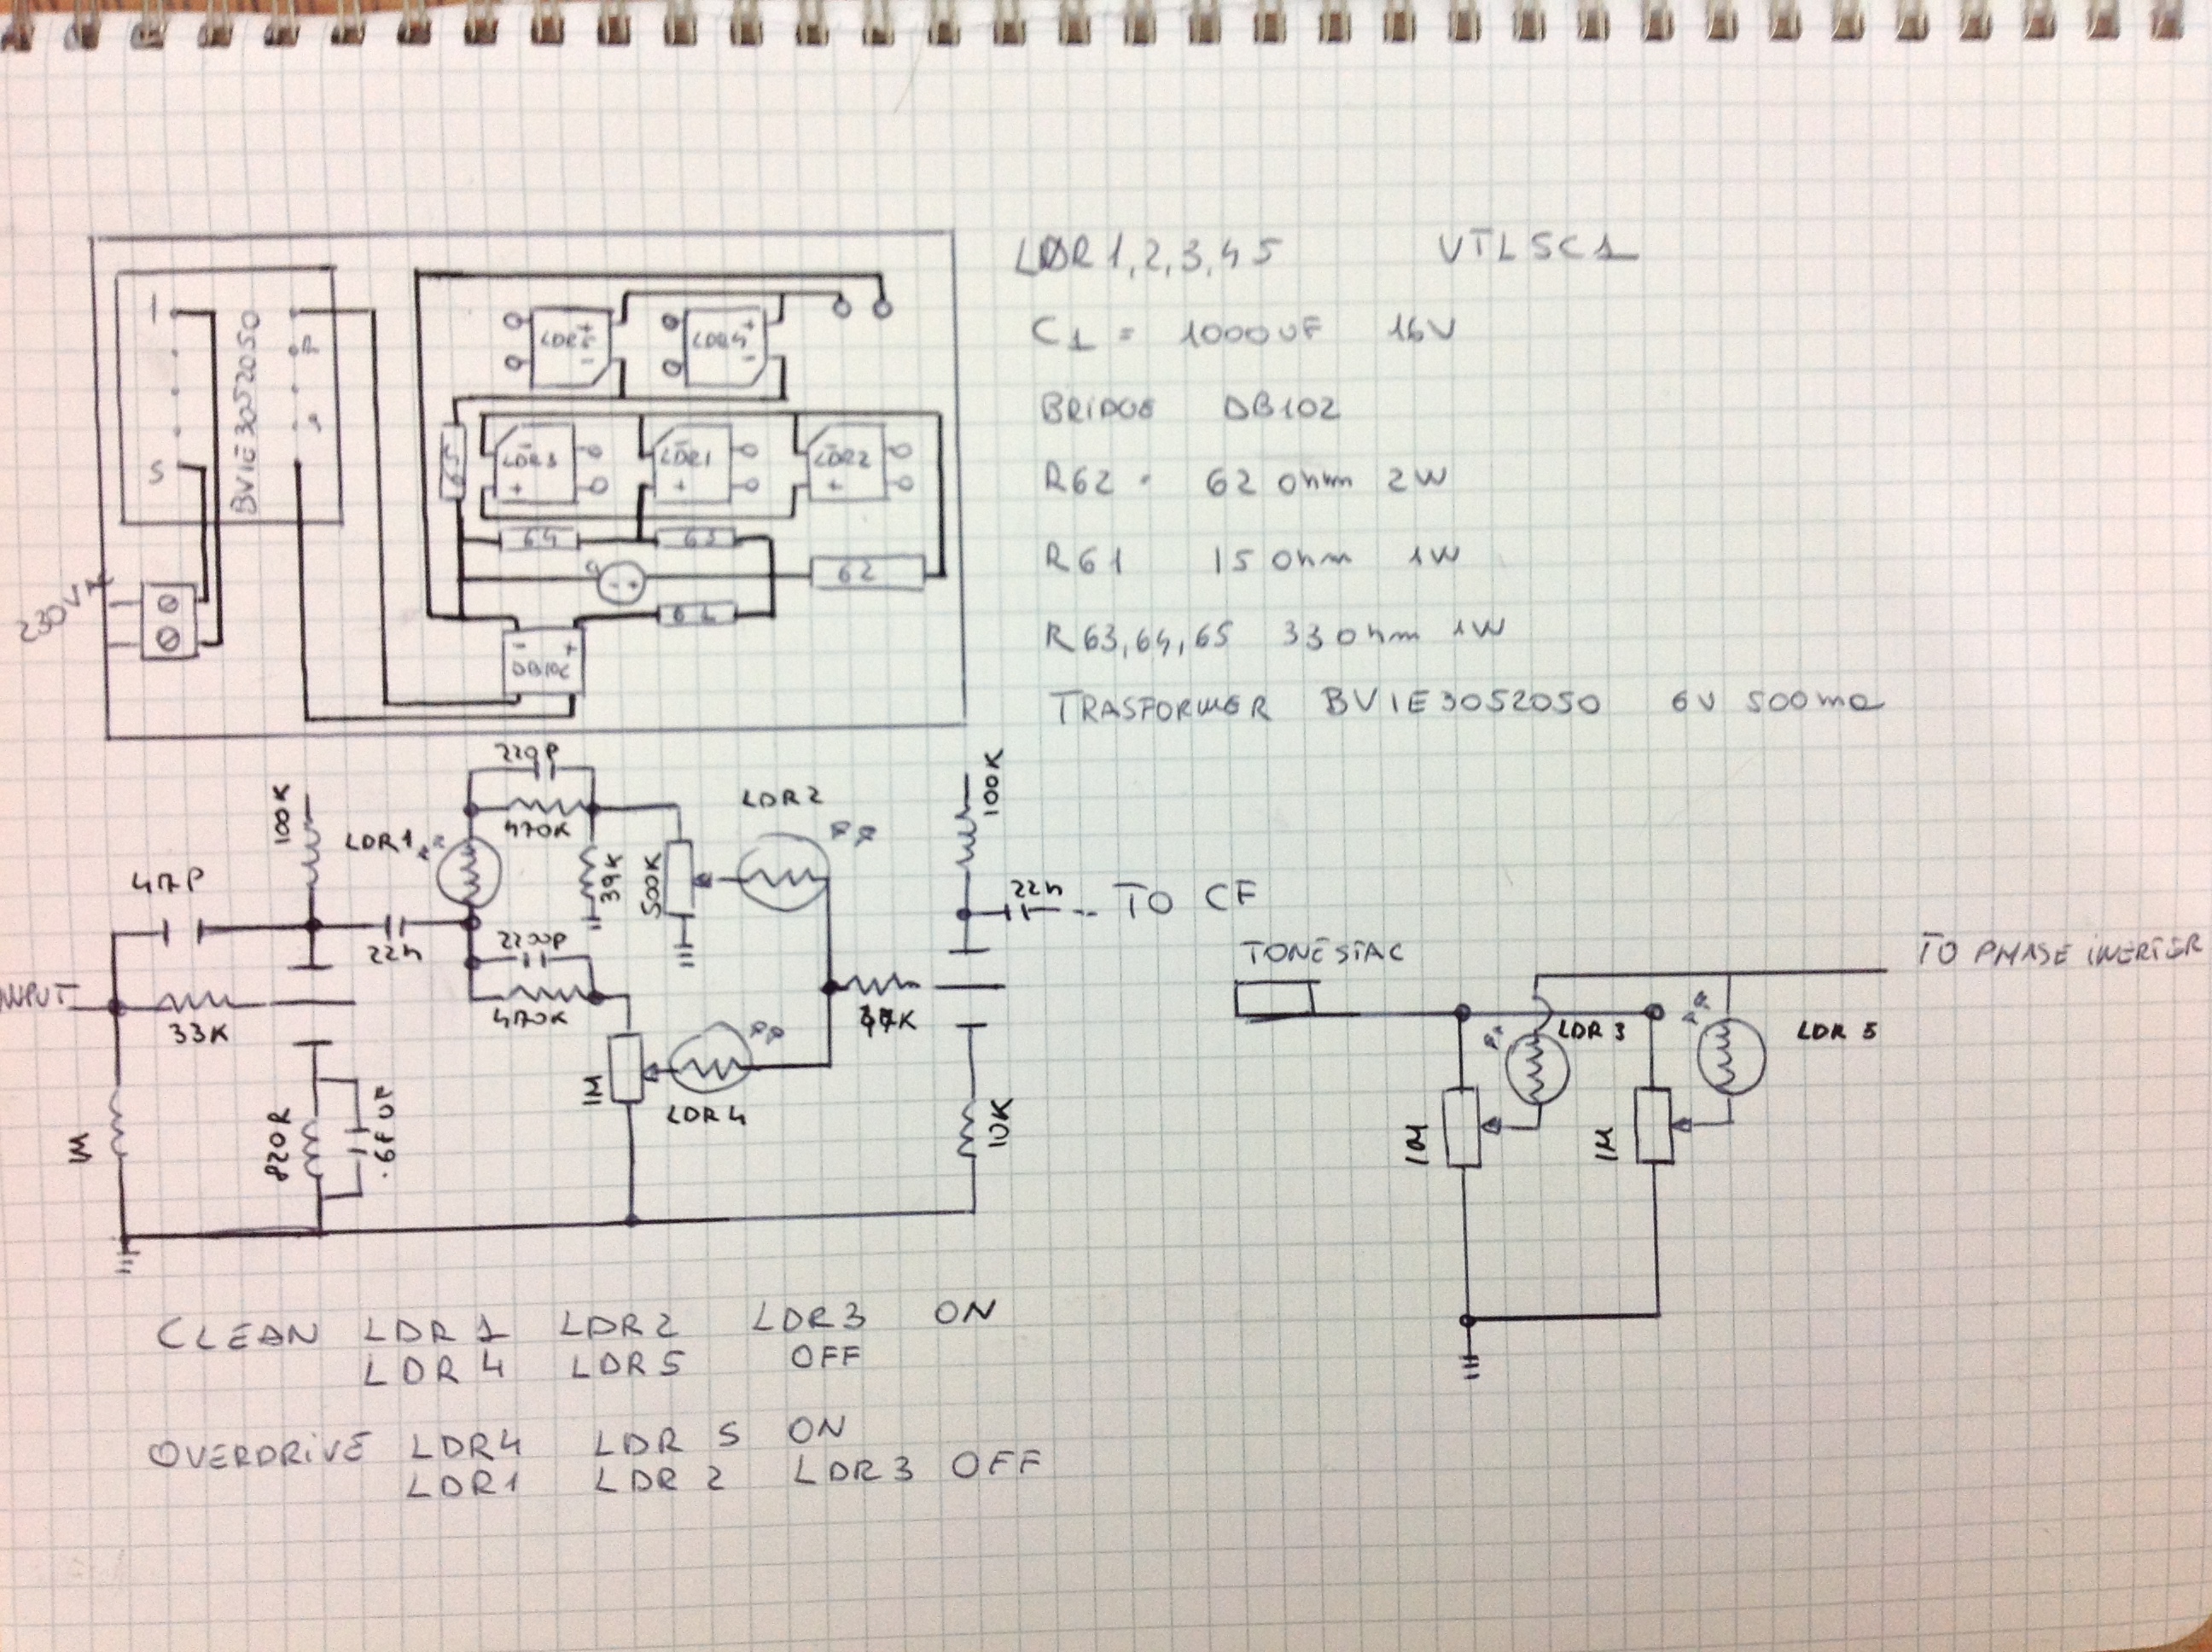 LDR1,2,3,4 5 VTL5C1
C1 = 1000uF 16V
BRIDGE DB102
R62 - 62 ohm 2W
R61 15 Ohm 1W
R63,64,65 33 Ohm 1W
TRASFORMER BVIE3052050 6V 500ma
1
5
BVIE3052050
230V
LDR5
+
-
LDR4
+
-
65
-
LDR3
+
-
LDR1
+
-
LDR2
+
64
63
- +
62
- +
220P
470K
LDR1
LDR2
100K
100K
47P
39K
500K
22n
TO CF
22n
2200P
INPUT
33K
470K
47K
1M
LDR4
1M
820R
.68 UF
10K
TONESTAC
TO PHASE INERTER
LDR 3
LDR 5
1M
CLEAN LDR1 LDR2 LDR3 ON
LDR4 LDR5 OFF
OVERDRIVE LDR4 LDR 5 ON
LDR1 LDR 2 LDR3 OFF